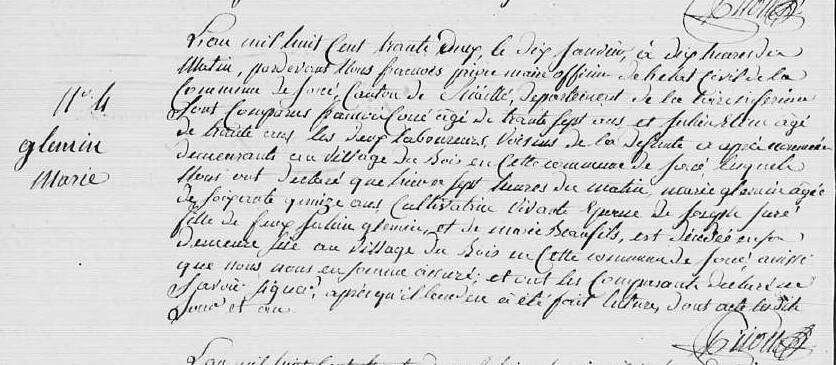 L'an mil huit Cent trante deux le dix Janvier, à dix heures du
Matin, par devant Nous françois maire officier de l'etat Civil de la
N° 4
Commune de Canton de departement de la loire inferieure
Sont Comparus françois agé de trante sept ans et Julien agé
de trante ans les deux laboureurs, Voisins de la defunte ci après nommée
glemin
demeurants au village du Bois en Cette commune de lesquels
Marie
Nous ont declaré que hier a sept heures du matin, marie glemin agée
de soixante quinze ans Cultivatrice vivante Epouse de Joseph Juré
fille de feux Julien glemin, et de marie Beaufils, est décédée en sa
demeure Sise au village du Bois en Cette commune de ainsi
que nous nous en somme assuré; et ont les Comparants declaré ne
Savoir Signer, après qu'il leur en a été fait lecture, dont acte les dits
Jour et an